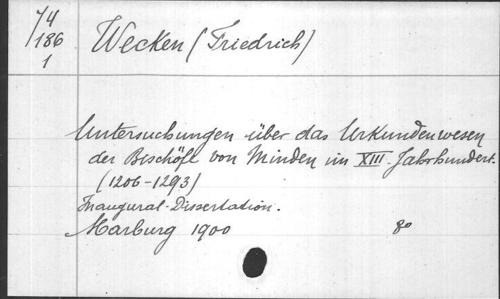 74
186
1
Wecken (Friedrich)
Untersuchungen über das Urkundenwesen
der Bischöfe von Minden im XIII. Jahrhundert.
(1206-1293)
Inaugural-Dissertation.
Marburg 1900 8o